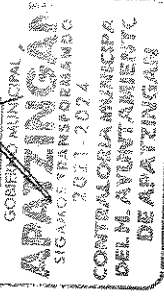 GOBIERNO MUNICIPAL
APATZINGÁN
SIGAMOS TRANSFORMANDO
2021-2024
CONTRALORIA MUNICIPAL
DEL H. AYUNTAMIENTO
DE APATZINGAN